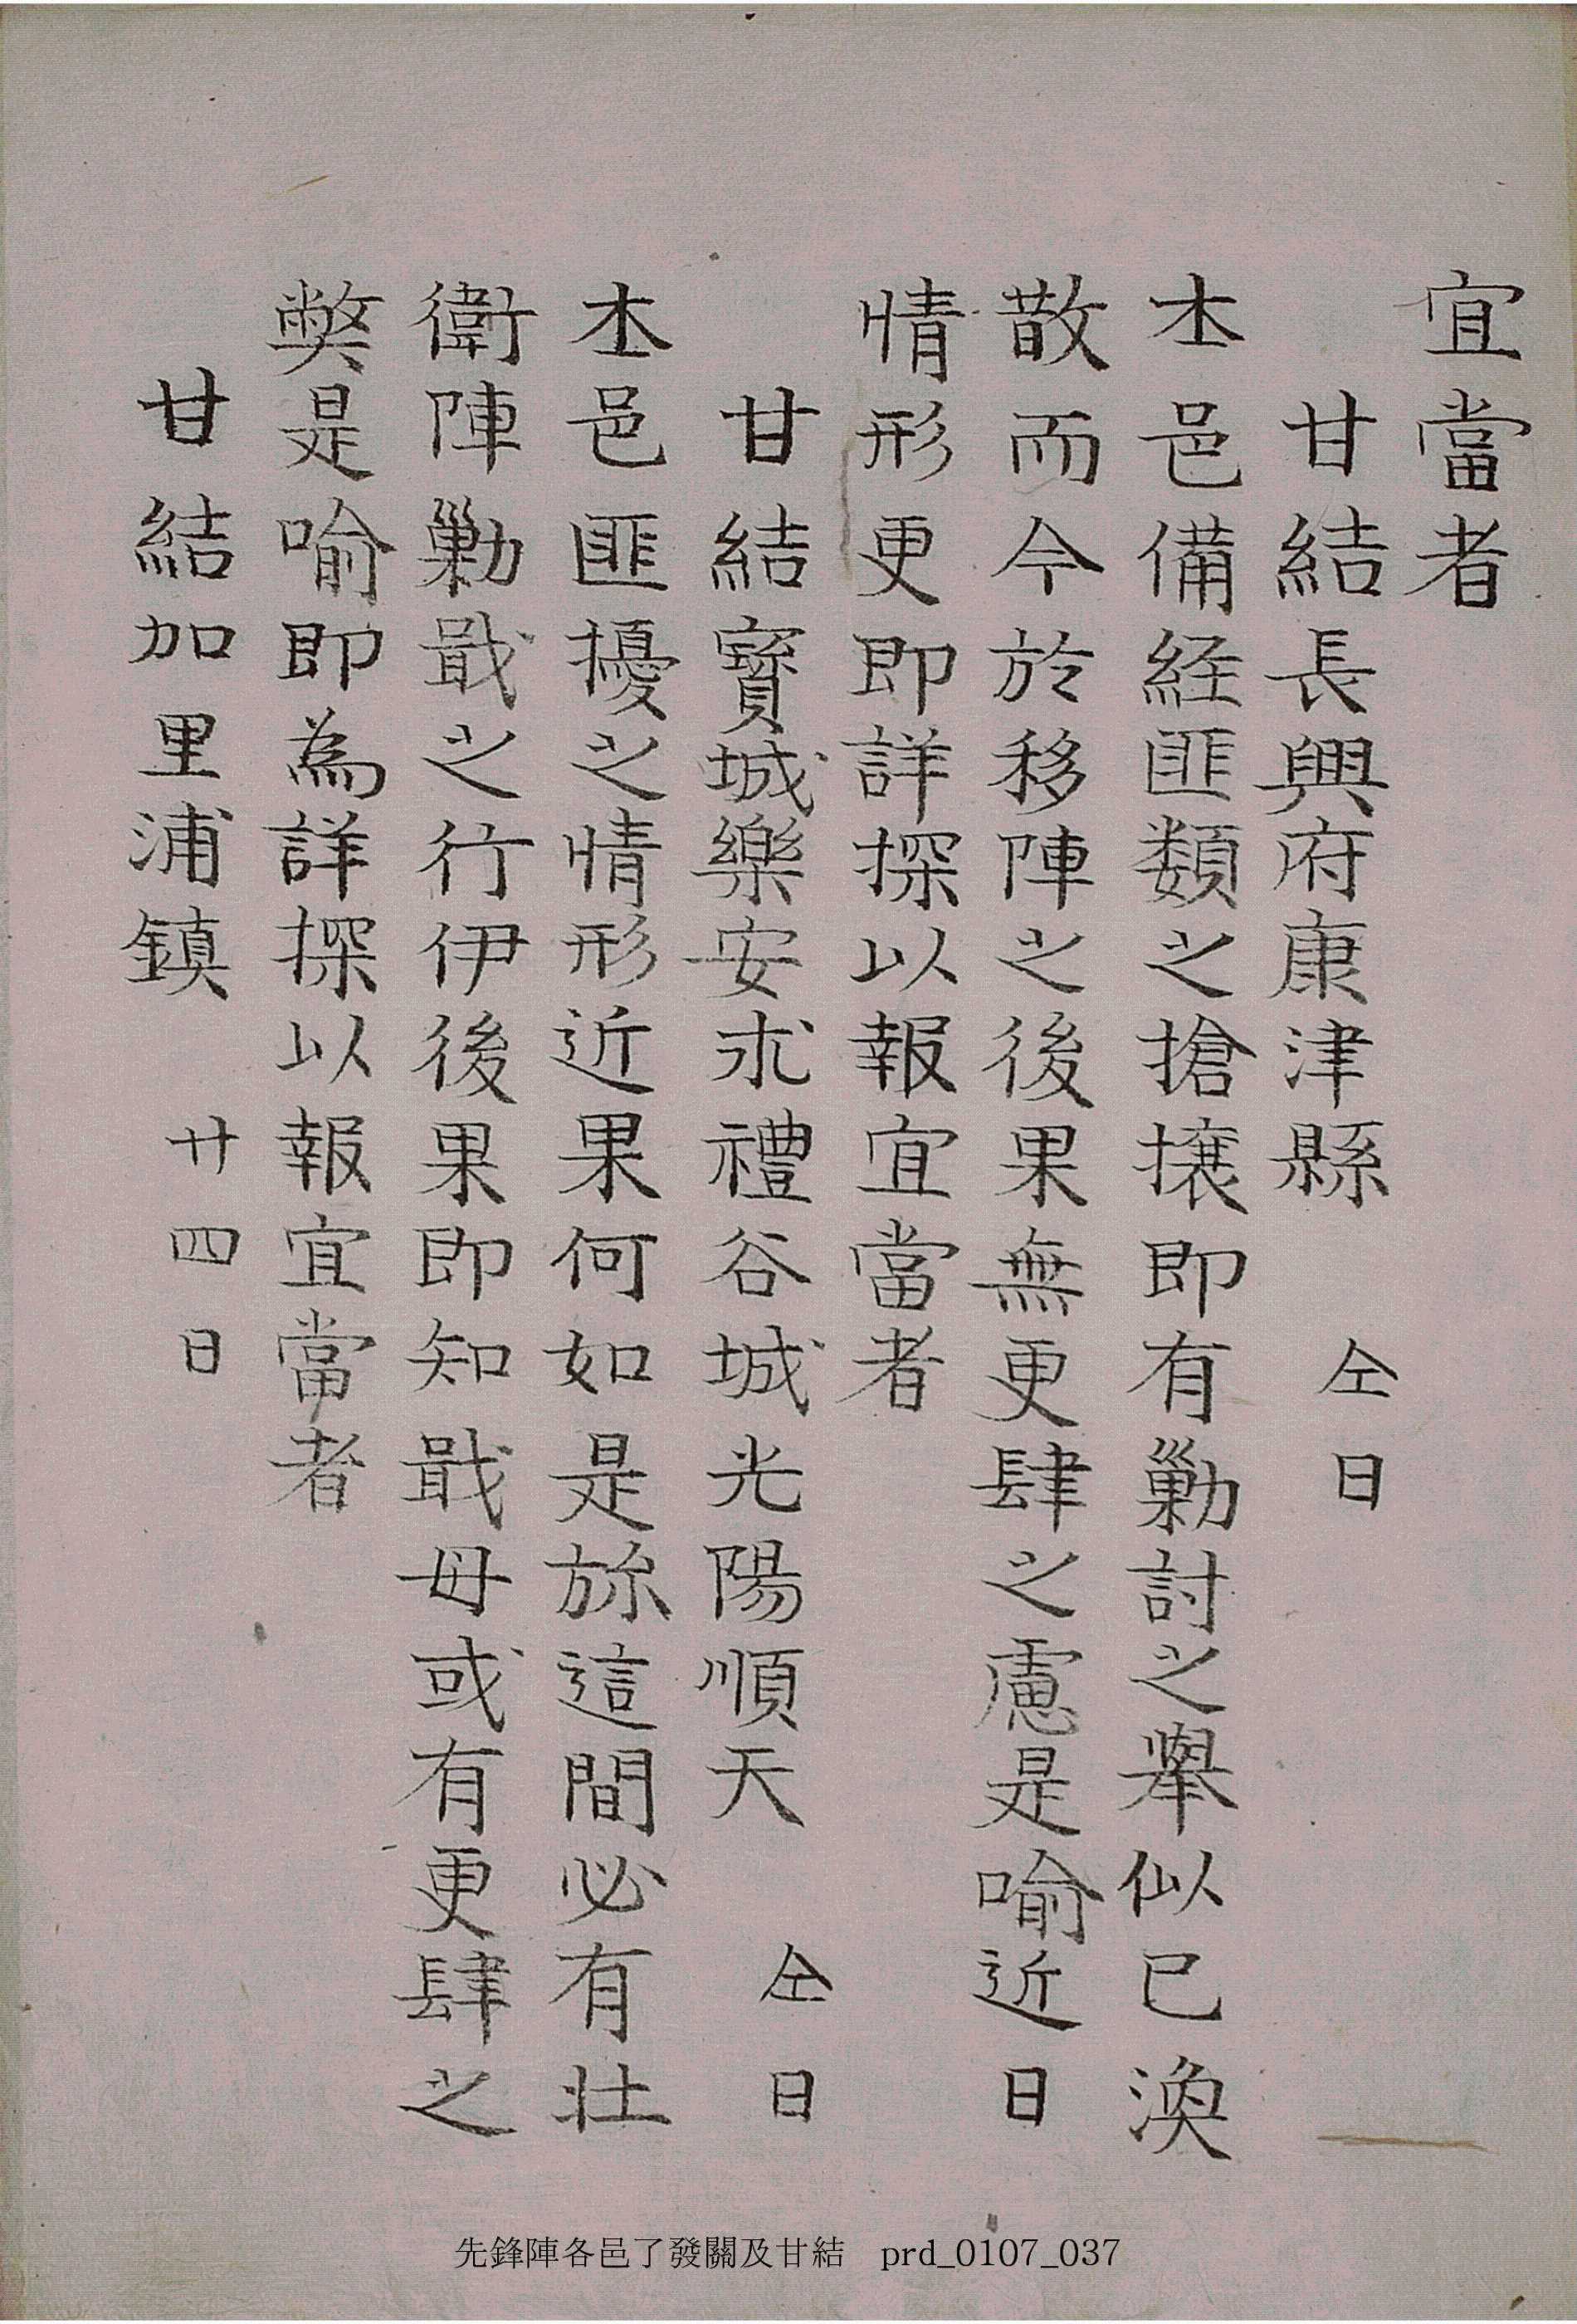 宜當者
甘結長興府康津縣 仝日
本邑備經匪類之搶攘即有勦討之擧似已渙
散而今於移陣之後果無更肆之慮是喩近日
情形更即詳探以報宜當者
甘結寶城樂安求禮谷城光陽順天 仝日
本邑匪擾之情形近果何如是旀這間必有壯
衛陣勦戢之行伊後果即知戢毋或有更肆之
獘是喩即為詳探以報宜當者
甘結加里浦鎮 廿四日
先鋒陣各邑了發關及甘結 prd_0107_037